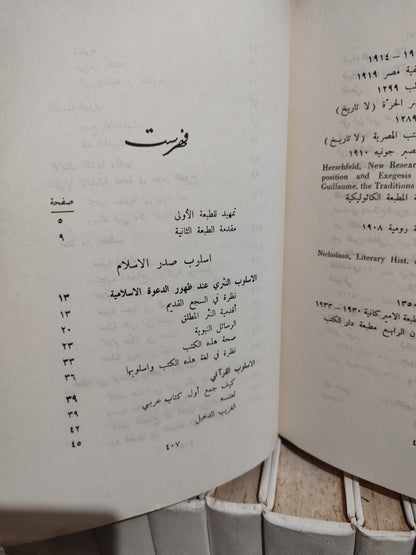 فهرست
صفحة
تمهيد للطبعة الأولى ٥
مقدمة الطبعة الثانية ٩
اسلوب صدر الاسلام
الاسلوب النثري عند ظهور الدعوة الاسلامية ١٣
نظرة في السجع القديم ١٣
أقدمية النثر المطلق ٢٠
الرسائل النبوية ٢٣
صحة هذه الكتب ٣٣
نظرة في لغة هذه الكتب واسلوبها ٣٦
الاسلوب القرآني ٣٩
كيف جمع أول كتاب عربي ٣٩
لغته ٤٢
الغريب الدخيل ٤٥
٤٠٧
– ١٩١٤
مصر ١٩١٩
١٢٩٩
الحرّة (لا تاريخ)
١٢٨٩
المصرية (لا تاريخ)
جونيه ١٩١٠
Herschfeld, New Resear
position and Exegesis
Guillaume, the Traditions
المطبعة الكاثوليكية
رومية ١٩٠٨
Nicholson, Literary Hist.
١٣٥٠
الاميركانية ١٩٣٠ – ١٩٣٣
الرابع مطبعة دار الكتب